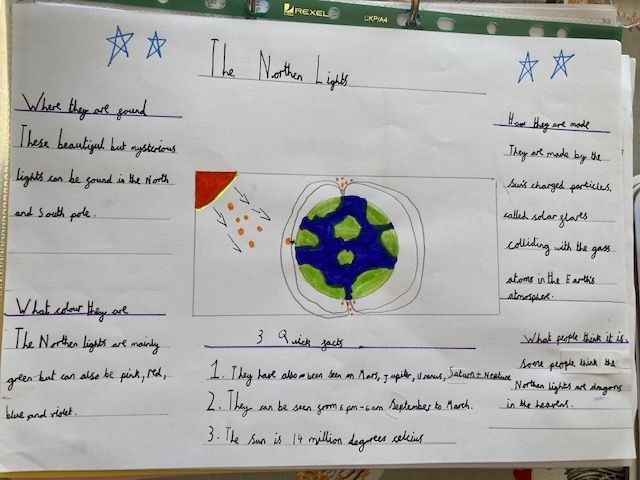 REXEL
CKP/A4
The Northen Lights
Where they are found
These beautiful but mysterious
lights can be found in the North
and South pole.
What colour they are
The Northen lights are mainly
green but can also be pink, red,
blue, and violet.
How they are made
They are made by the
sun's charged particles.
called solar flares
colliding with the gass
atoms in the Earth's
atmosphere.
3 Quick facts
1. They have also been seen on Mars, Jupiter, Uranus, Saturn + Neptune
2. They can be seen from 6 pm - 6 am September to March.
3. The sun is 14 million degrees celcius
What people think it is
some people think the
Northen lights are dragons
in the heavens.